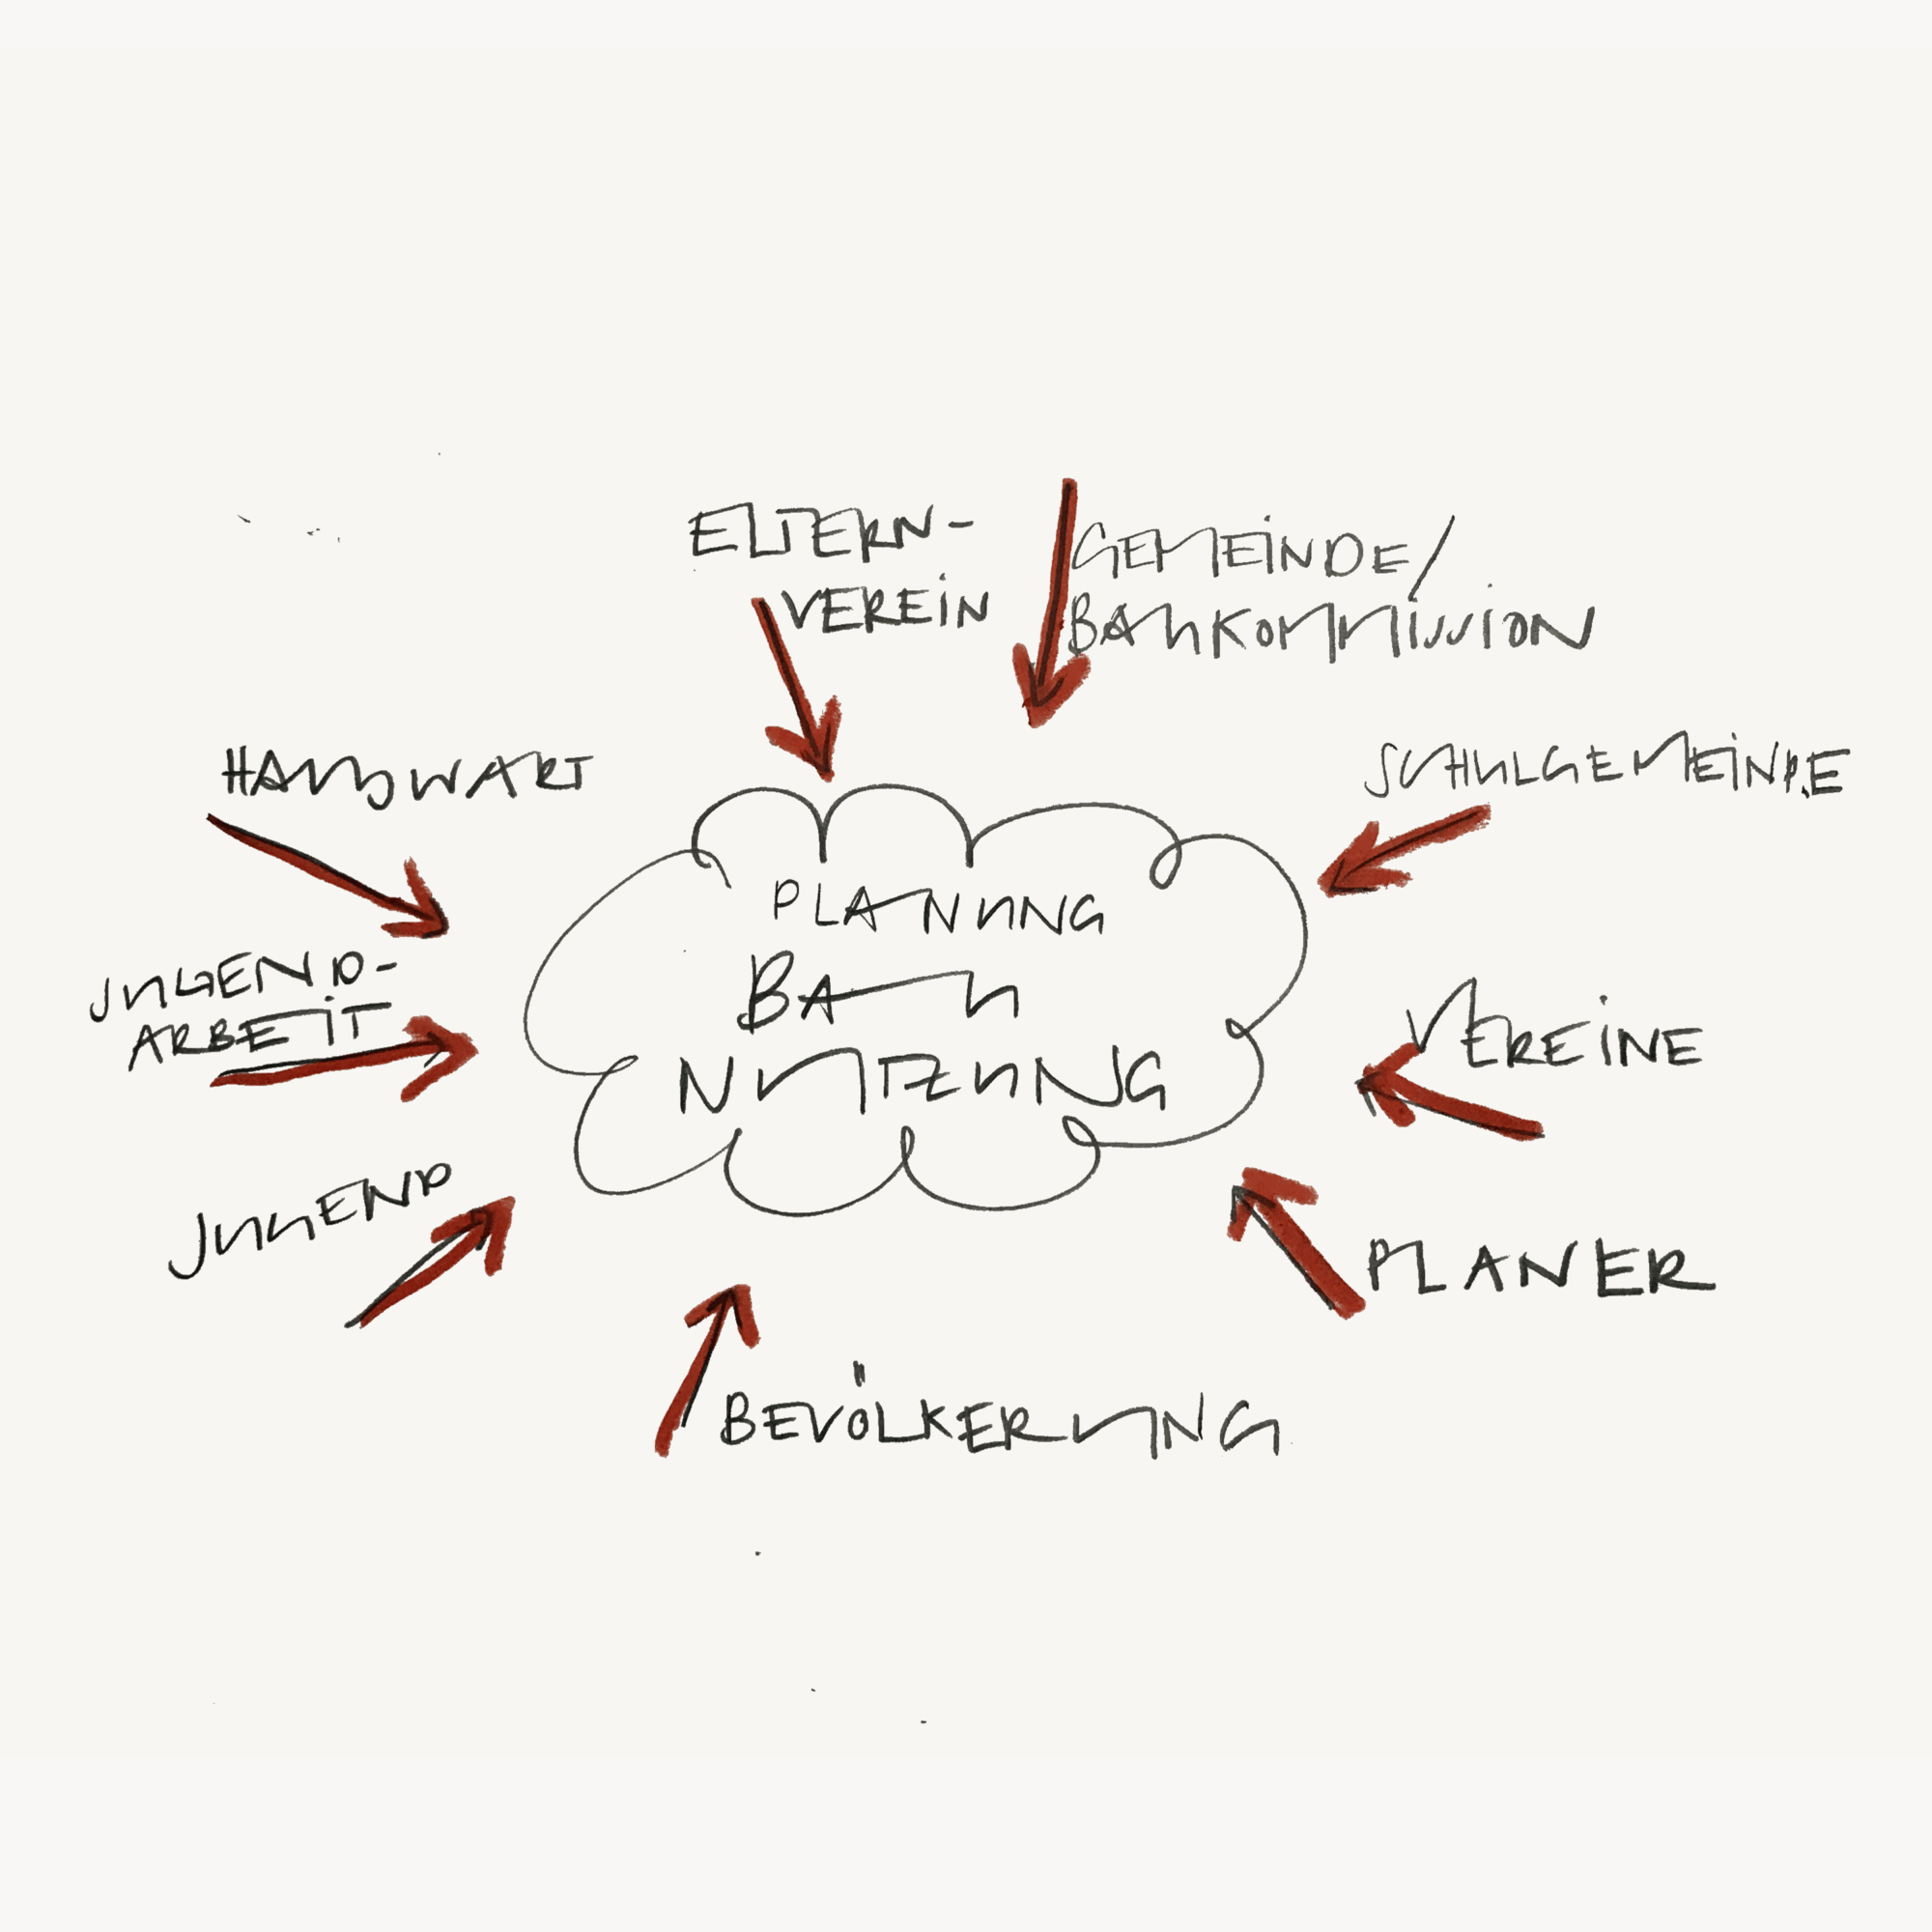 ELTERN-
VEREIN
GEMEINDE/
BAUKOMMISSION
HAUSWART
SCHULGEMEINDE
JUGEND-
ARBEIT
PLANUNG
BAU
NUTZUNG
VEREINE
JUGEND
PLANER
BEVÖLKERUNG